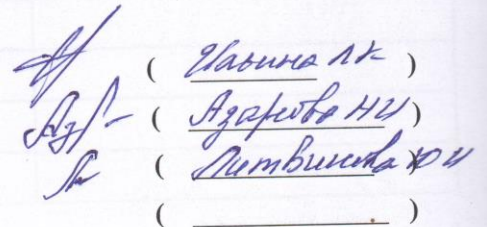 ( Ильина ЛК )
Аз ( Азарова НИ )
( Литвинова ЮИ )
( )